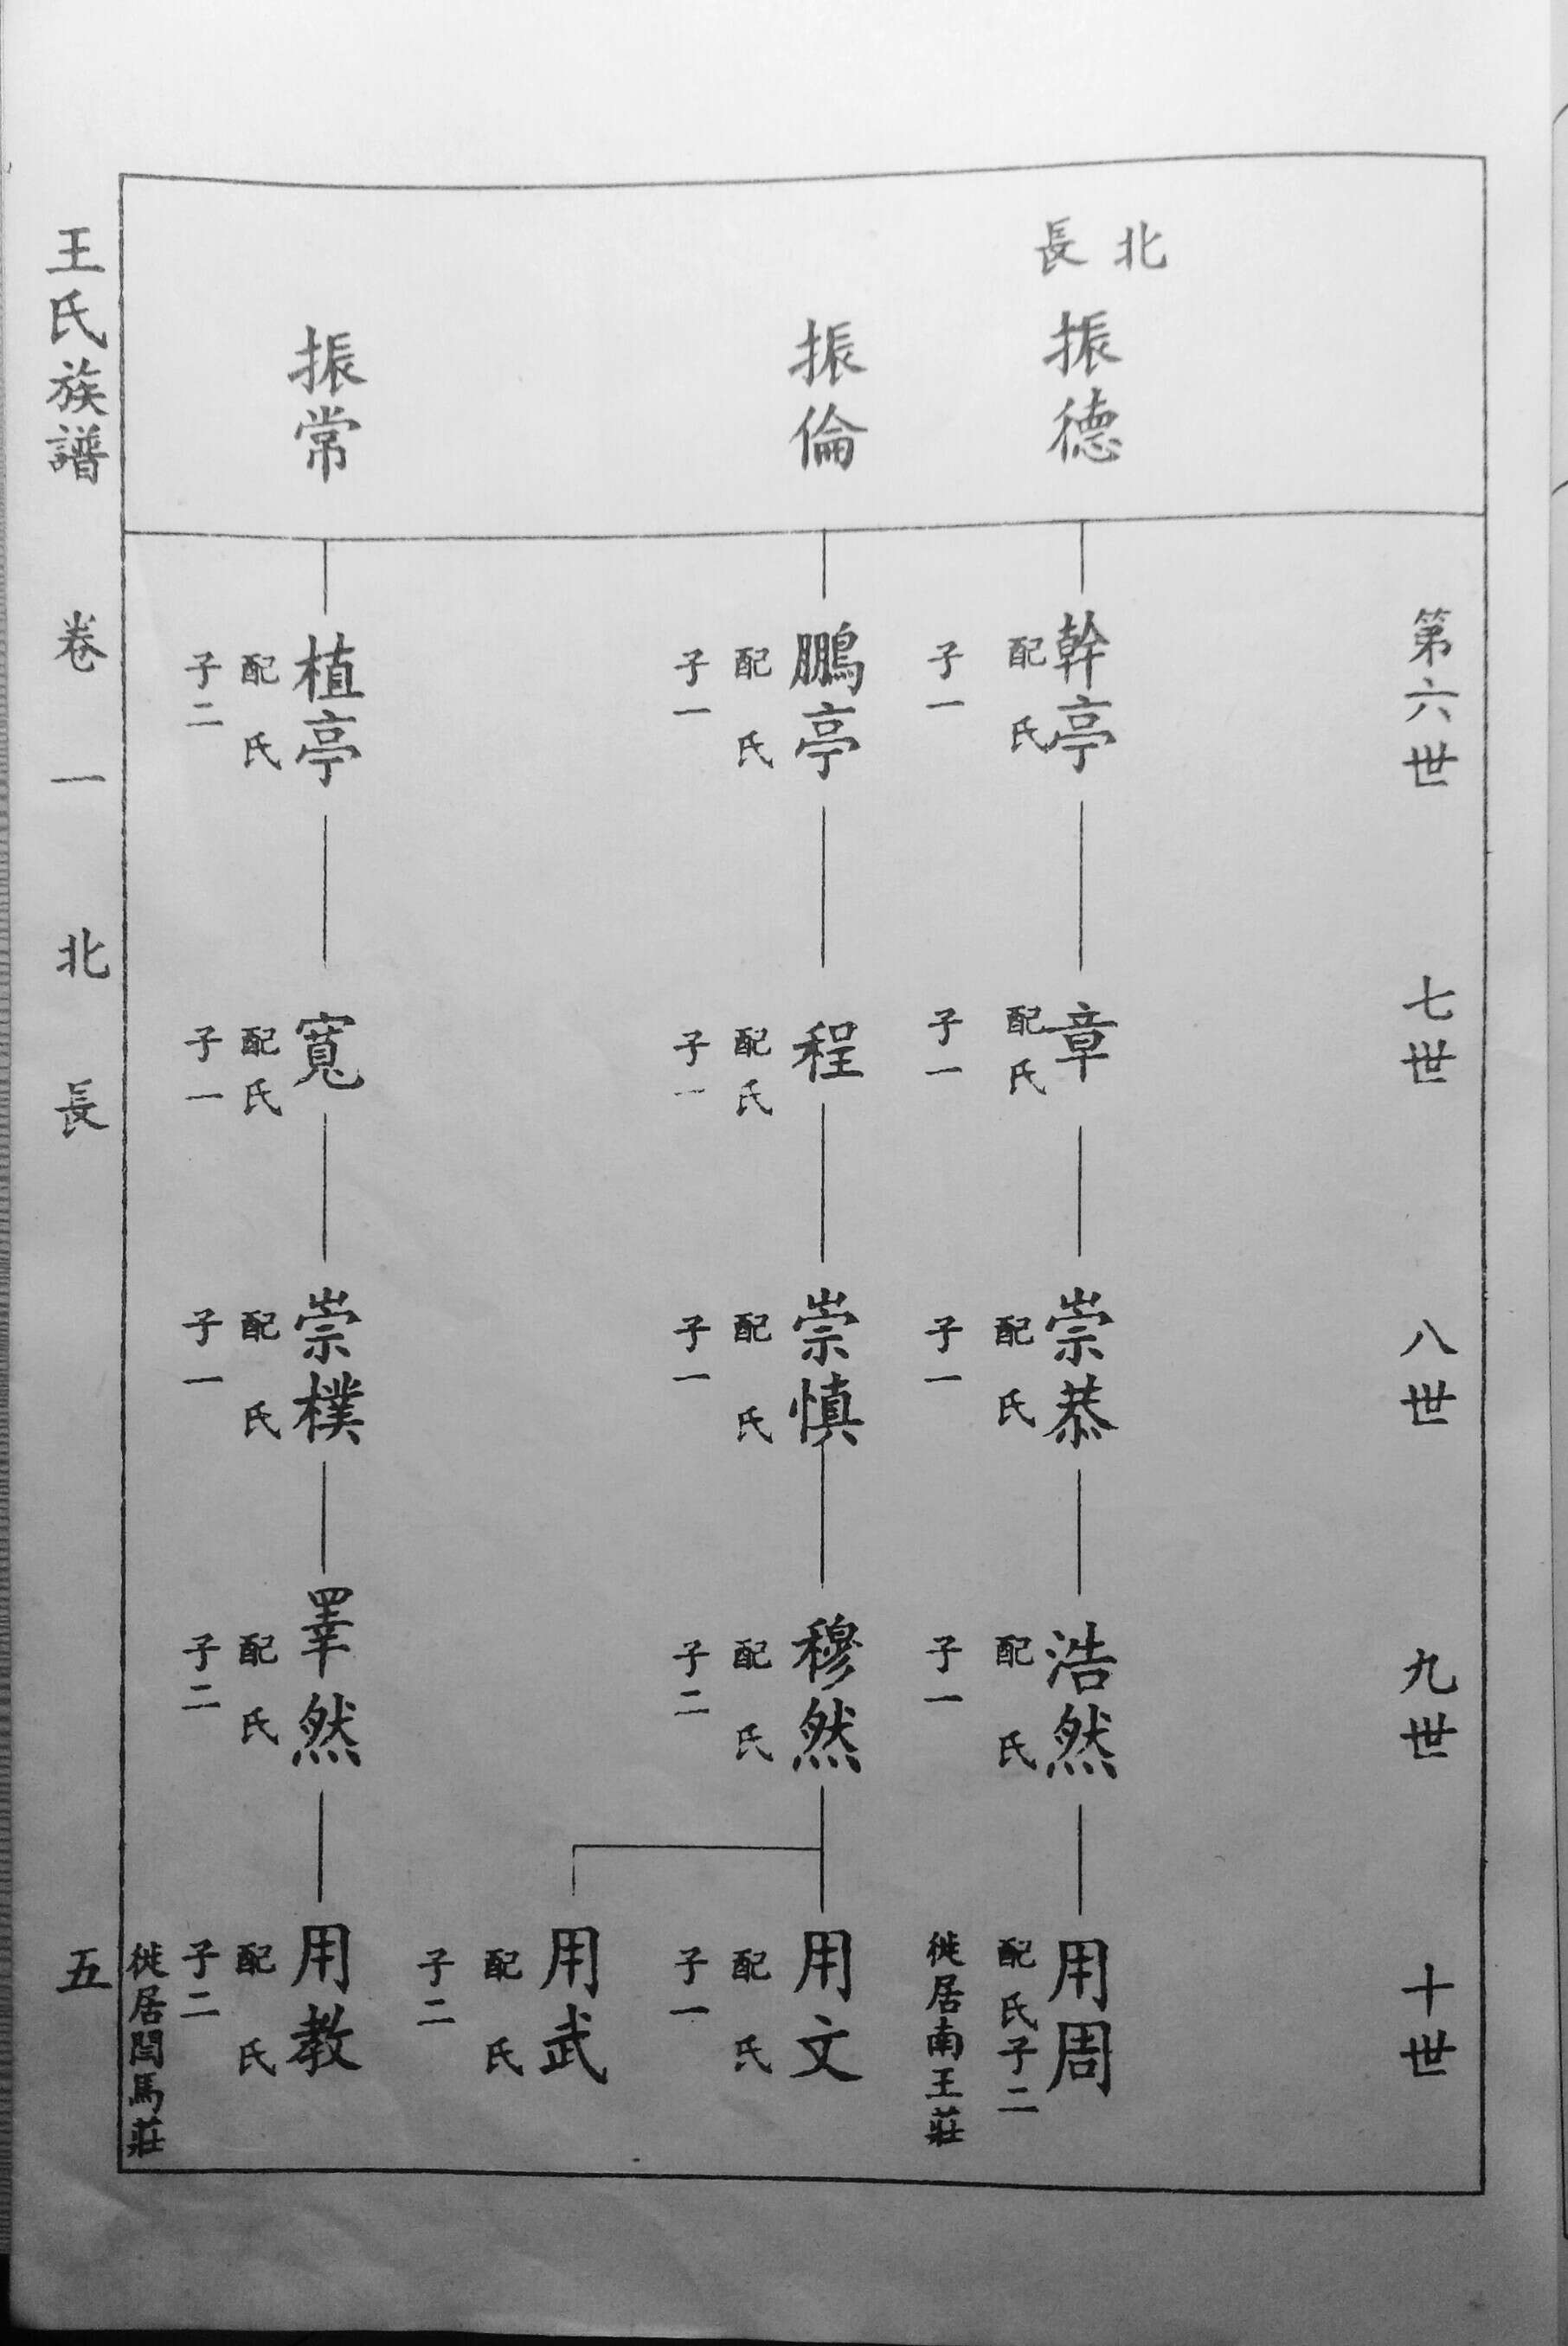 北
長
第六世
七世
八世
九世
十世
振德
幹亭
配 氏
子一
章
配氏
子一
崇恭
配 氏
子一
浩然
配 氏
子一
用周
配氏子二
徙居南王莊
振倫
鵬亭
配 氏
子一
程
配氏
子一
崇慎
配 氏
子一
穆然
配 氏
子二
用文
配 氏
子一
用武
配 氏
子二
振常
植亭
配 氏
子二
寬
配氏
子一
崇樸
配 氏
子一
睪然
配 氏
子二
用教
配 氏
子二
徙居閆馬莊
王氏族譜 卷一 北長 五